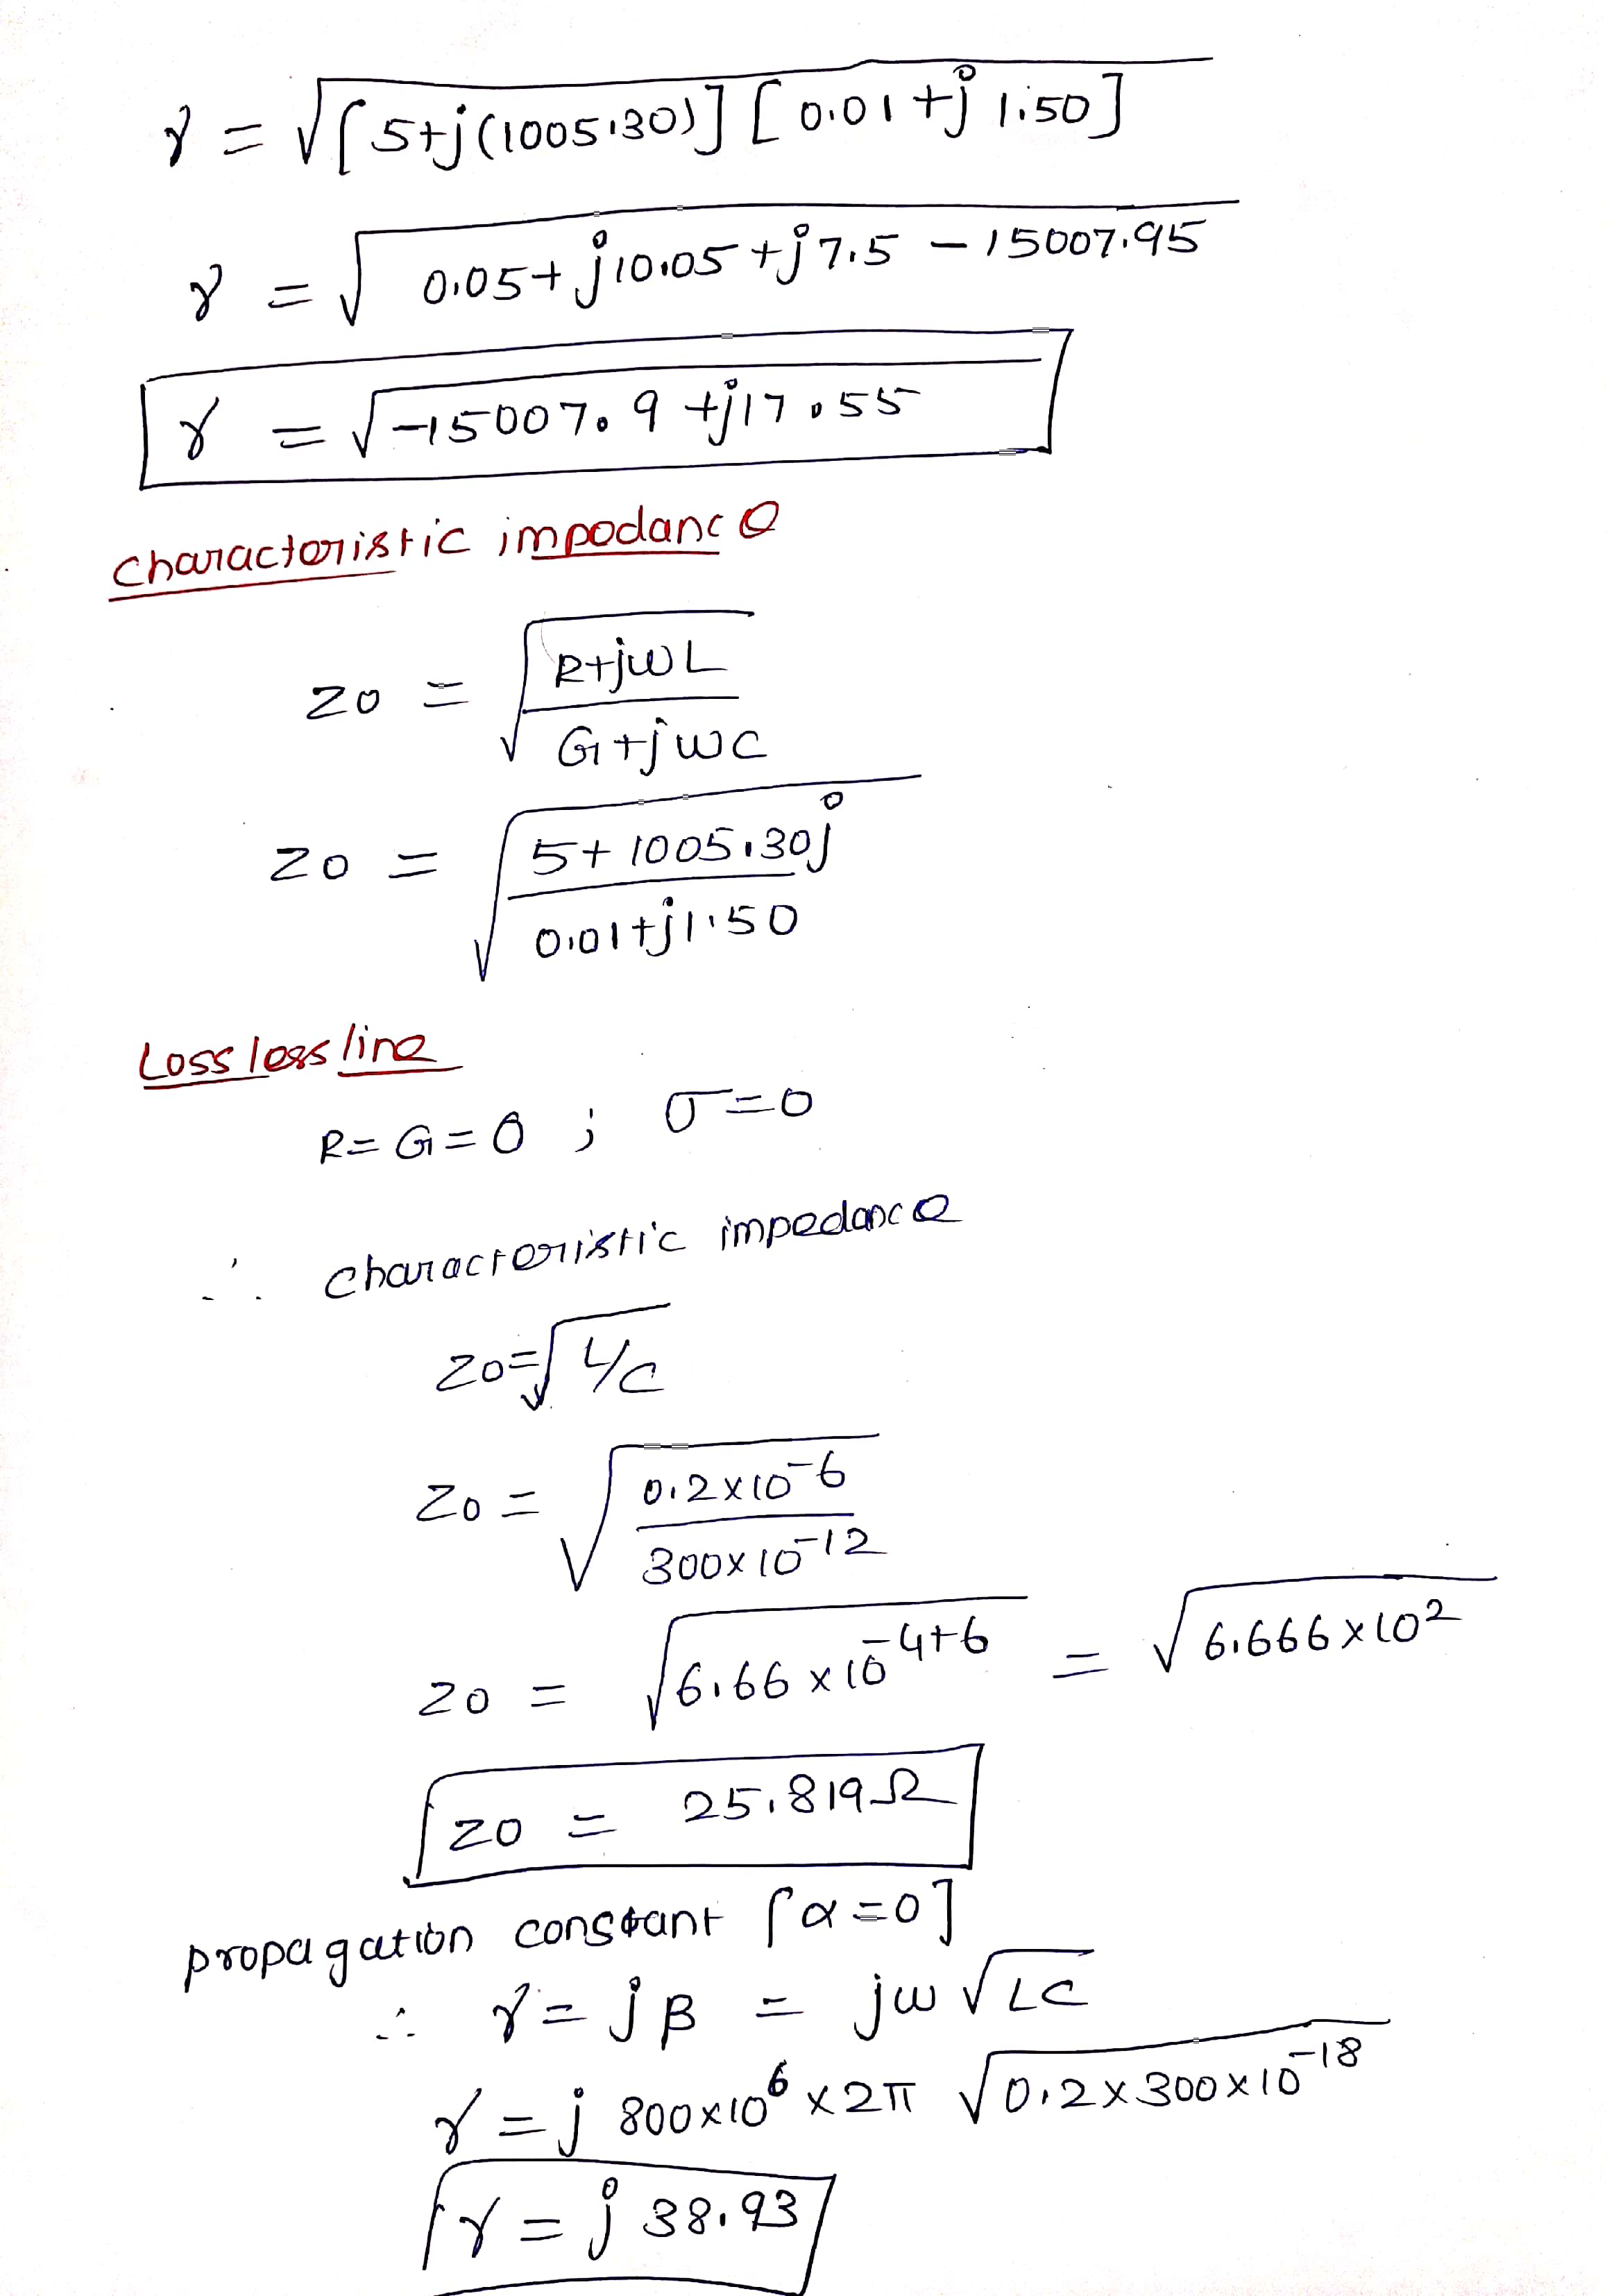 γ = √[5+j(1005.30)] [0.01+j 1.50]
γ = √0.05+j10.05+j7.5 -15007.95
γ = √-15007.9 +j17.55
Characteristic impedance
Zo = √R+jωL / G+jωC
Zo = √5+1005.30j / 0.01+j1.50
Loss less line
R=G=0 ; σ=0
∴ characteristic impedance
Zo=√L/C
Zo = √0.2×10^-6 / 300×10^-12
Zo = √6.66×10^-4+6 = √6.666×10^2
Zo = 25.819Ω
propagation constant [α=0]
∴ γ = jβ = jω√LC
γ = j 800×10^6 ×2π √0.2×300×10^-18
γ = j 38.93